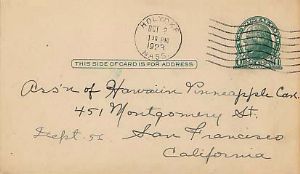 HOLYOKE
MASS.
1923
THIS SIDE OF CARD IS FOR ADDRESS
Ass'n of Hawaiin Pinneapple Can.
451 Montgomery St.
Dept. 56 San Francisco
California